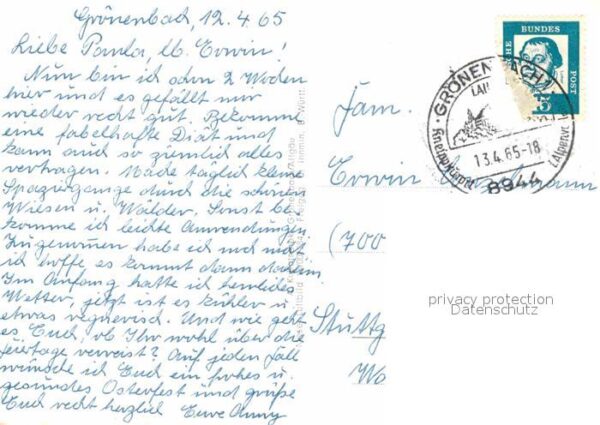 Grönenbach, 12.4.65
Liebe Paula, lb. Erwin!
Nun bin ich schon 2 Wochen
hier und es gefällt mir
wieder recht gut. Bekomme
eine fabelhafte Diät und
kann auch so ziemlich alles
vertragen. Mache täglich kleine
Spaziergänge durch die schönen
Wiesen u. Wälder. Sonst be-
komme ich leichte Anwendungen.
Zugenommen habe ich noch nicht
ich hoffe es kommt dann daheim.
Im Anfang hatte ich herrliches
Wetter, jetzt ist es kühler u.
etwas regnerisch. Und wie geht
es Euch, ob Ihr wohl über die
Feiertage verreist? Auf jeden Fall
wünsche ich Euch ein frohes u.
gesundes Osterfest und grüße
Euch recht herzlich Eure Anny
Fam.
Erwin
(700
Stuttg
Wo
DEUTSCHE BUNDES POST
GRÖNENBACH
13.4.65-18
8944
privacy protection
Datenschutz